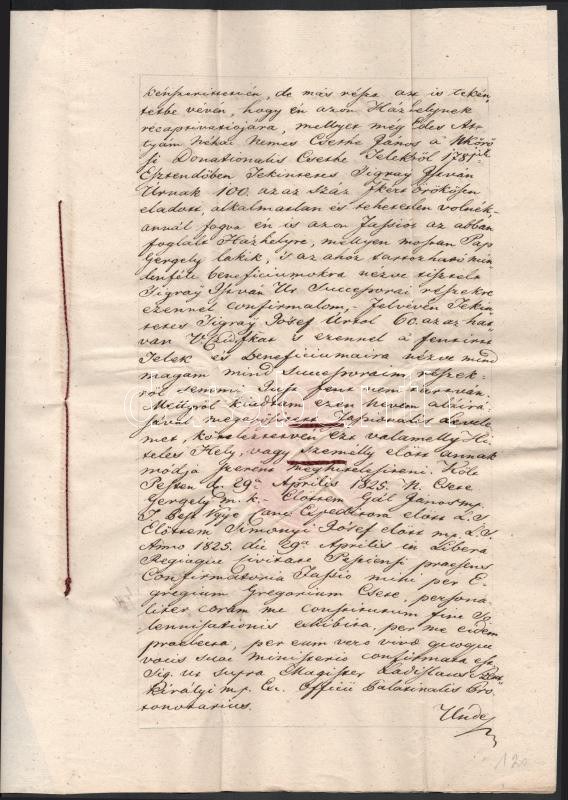 kénszerittetvén, de más részt azt is tekén,
tetbe vévén, hogy én azon Házhelynek
recaptivatiojára, mellyet még Édes At-
tyám Néhai Nemes Csethe János a
Donationalis Csethe Telekből
Esztendőben Tekintetes Sigray István
Urnak 100. azaz Száz ftkért örökösen
eladott, alkalmatlan és tehetetlen volnék-
annál fogva én is azon Fassiót az abban
foglalt Házhelyre, mellyen mostan Pap
Gergely lakik, is az ahoz tartozható min
denféle beneficiumokra nézve tisztelt
Sigray István Ur Successorai részekre
ezennel confirmalom,- Felvévén Tekin
tetes Sigray Josef Urtol 60. azaz hat
van V. Czédulkat is ezennel a fentirtt
Telek és Beneficiumaira nézve mind
magam mind successoraim részek-
ről semmi Just fent nem tartván.
Mellyről kiadtam ezen nevem aláirá-
sával megerősített Fassionalis levele
met, köteleztetvén ezt valamelly Hi
teles Hely, vagy Személly előtt annak
módja szerént meghitelesiteni. Költ
Pesten d. 29a Aprilis 1825. N. Csete
Gergely m. k. Előttem Gál János mp.
T. Best Vgye
Előttem Simonyi Josef előtt mp. L. S.
Anno 1825. die 29a Aprilis in Libera
Regiaque Civitate Pestiensi praesens
Confirmatoria Fassio mihi per E-
gregium Gregorium Csete, persona
liter coram me constitutum fine So
lennisationis exhibita, per me eidem
praelecta, per eum vero vivae quoque
vocis suae ministerio confirmata est
Sig. ut supra Magister Ladislaus Szent
királyi mp. Ex. Officii Palatinalis Pro
tonotarius.
Unde
12